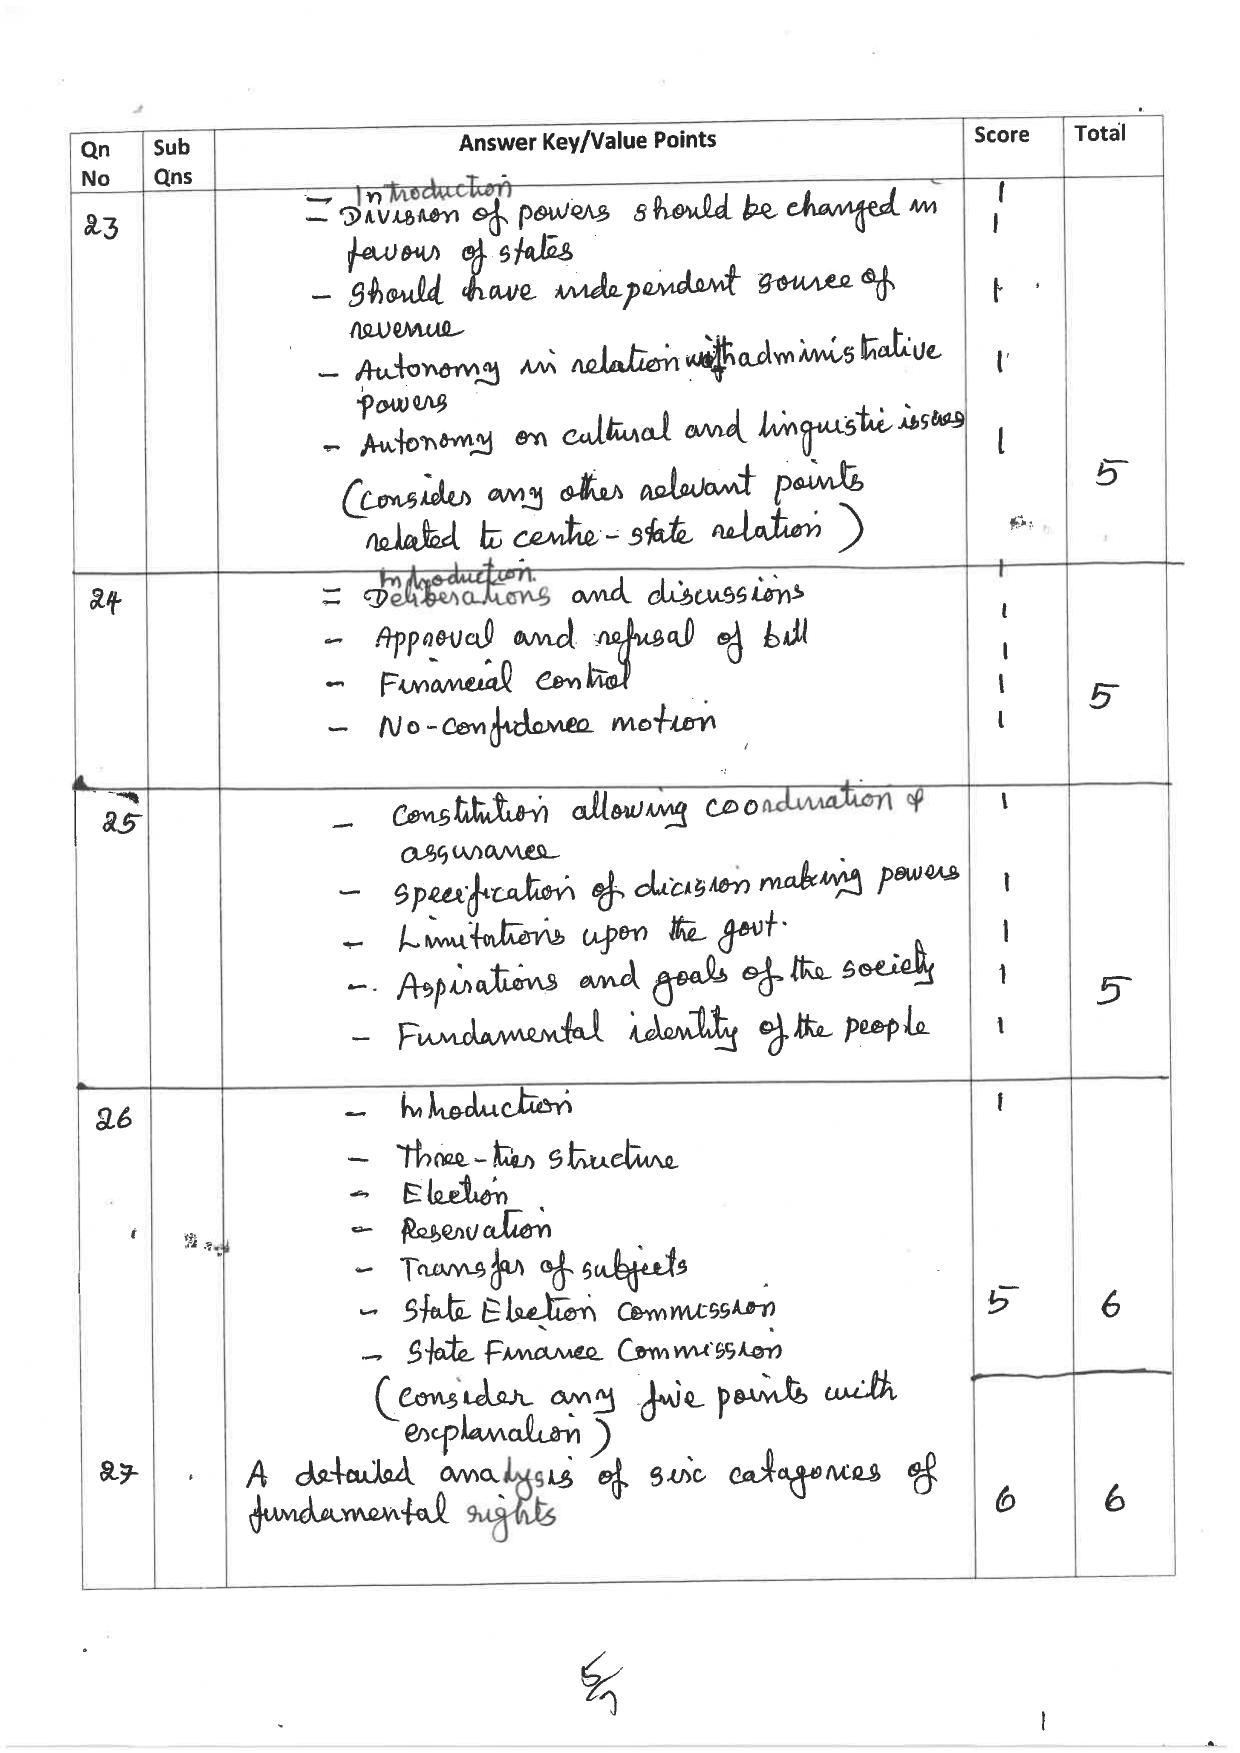 Qn No Sub Qns Answer Key/Value Points Score Total
- Introduction 1
23 - Division of powers should be changed in 1
favour of states
- Should have independent source of 1
revenue
- Autonomy in relation with administrative 1
powers
- Autonomy on cultural and linguistic issues 1
(Consider any other relevant points 5
related to centre-state relation)
Introduction 1
24 = Deliberations and discussions 1
- Approval and refusal of bill 1
- Financial control 1 5
- No-confidence motion 1
25 - Constitution allowing coordination & 1
assurance
- Specification of dicision making powers 1
- Limitations upon the govt. 1
- Aspirations and goals of the society 1 5
- Fundamental identity of the people 1
26 - Introduction 1
- Three-tier structure
- Election
- Reservation
- Transfer of subjects
- State Election Commission 5 6
- State Finance Commission
(Consider any five points with
explanation)
27 A detailed analysis of six catagories of
fundamental rights 6 6
5/7